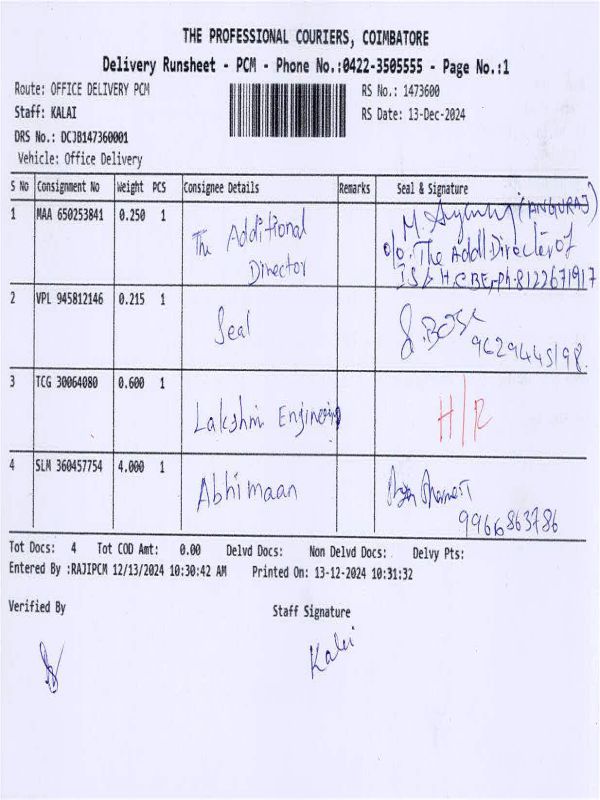 THE PROFESSIONAL COURIERS, COIMBATORE
Delivery Runsheet - PCM - Phone No.:0422-3505555 - Page No.:1
Route: OFFICE DELIVERY PCM
RS No.: 1473600
Staff: KALAI
RS Date: 13-Dec-2024
DRS No.: DCJB147360001
Vehicle: Office Delivery
S No Consignment No Weight PCS Consignee Details Remarks Seal & Signature
1 MAA 650253841 0.250 1 The Additional Director
M. (ANGURAJ)
o/o. The Addl Director of
Ph. 8122671917
2 VPL 945812146 0.215 1 Seal
S. BOSE
9629445198.
3 TCG 30064080 0.600 1 Lakshmi Engineering H/R
4 SLM 360457754 4.000 1 Abhimaan
9966863786
Tot Docs: 4 Tot COD Amt: 0.00 Delvd Docs: Non Delvd Docs: Delvy Pts:
Entered By :RAJIPCM 12/13/2024 10:30:42 AM Printed On: 13-12-2024 10:31:32
Verified By Staff Signature
Kalai